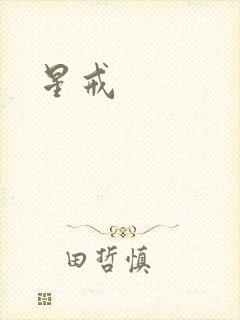 星戒
田哲慎